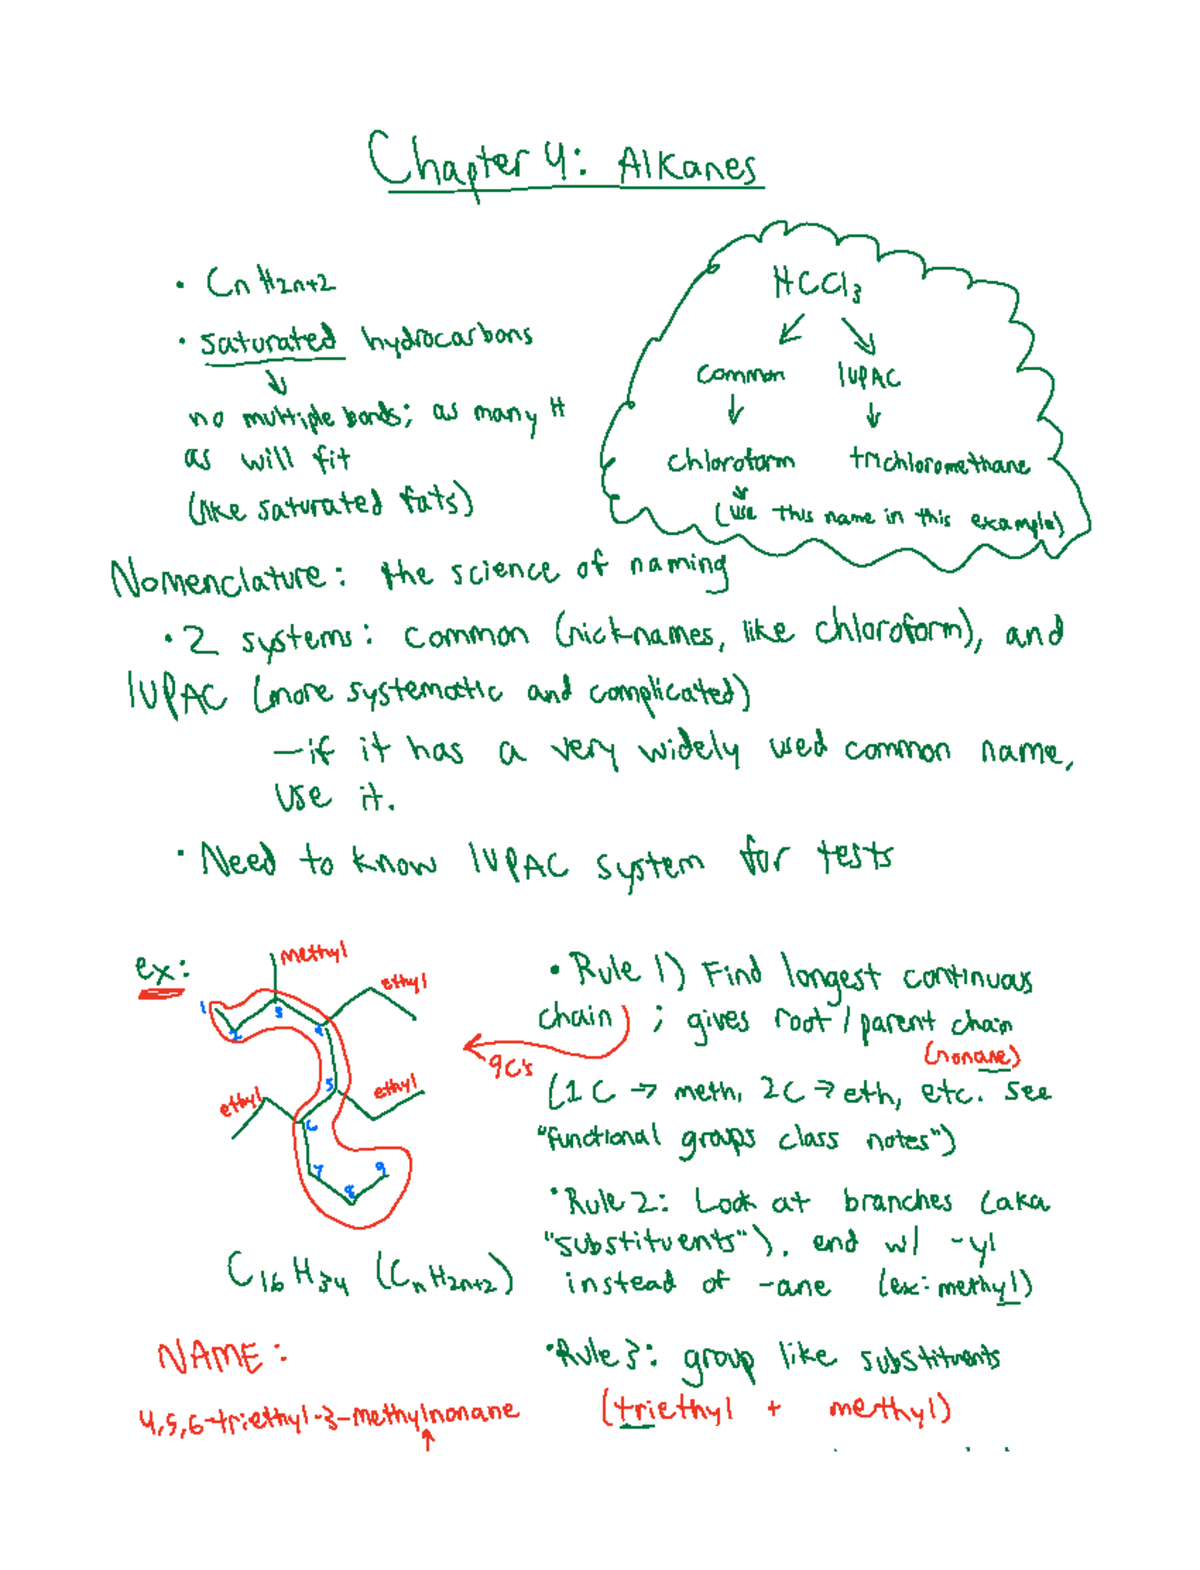 Chapter 4: Alkanes
• CnH2n+2
• saturated hydrocarbons
↓
no multiple bonds; as many H
as will fit
(like saturated fats)
HCCl3
common IUPAC
chloroform trichloromethane
(use this name in this example)
Nomenclature: the science of naming
• 2 systems: common (nicknames, like chloroform), and
IUPAC (more systematic and complicated)
— if it has a very widely used common name,
use it.
• Need to know IUPAC system for tests
ex:
methyl
ethyl
1 2 3 4
ethyl 5 ethyl
6
7 8 9
C16H34 (CnH2n+2)
NAME:
4,5,6-triethyl-3-methylnonane
• Rule 1) Find longest continuous
chain ; gives root/parent chain
9C's
(nonane)
(1C → meth, 2C → eth, etc. see
"functional groups class notes")
• Rule 2: Look at branches (aka
"substituents"). end w/ -yl
instead of -ane (ex: methyl)
• Rule 3: group like substituents
(triethyl + methyl)